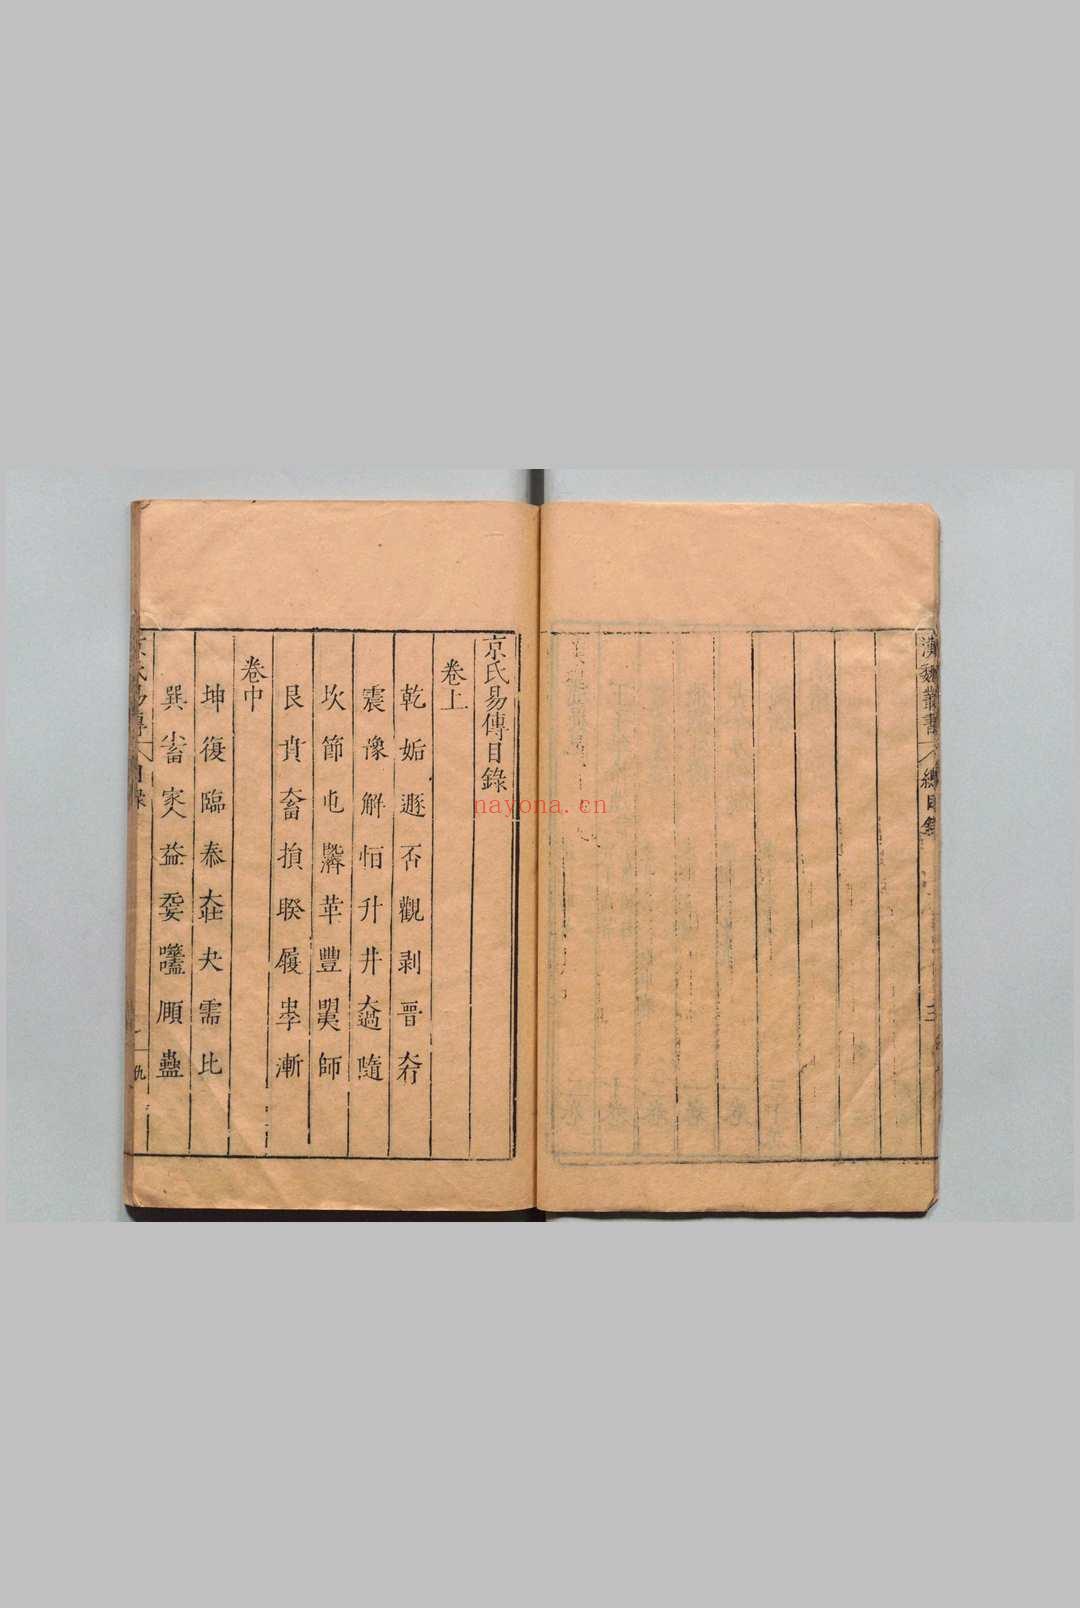 漢魏叢書
總目錄
京氏易傳目錄
卷上
乾 姤 遯 否 觀 剥 晉 大有
震 豫 解 恒 升 井 大過 隨
坎 節 屯 既濟 革 豐 明夷 師
艮 賁 大畜 損 睽 履 中孚 漸
卷中
坤 復 臨 泰 大壯 夬 需 比
巽 小畜 家人 益 无妄 噬嗑 頤 蠱
nayona.cn